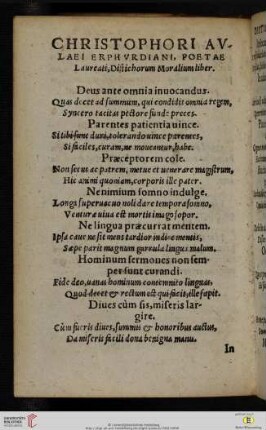 CHRISTOPHORI AV-
LAEI ERPHVRDIANI, POETAE
Laureati, Distichorum Moralium liber.
Deus ante omnia inuocandus.
Quas decet ad summum, qui condidit omnia regem,
Syncero tacitas pectore funde preces.
Parentes patientia uince.
Si tibi sunt duri, tolerando uince parentes,
Si faciles, curam, ne moueantur, habe.
Præceptorem cole.
Non secus ac patrem, metue et uenerare magistrum,
Hic animi quoniam, corporis ille pater.
Ne nimium somno indulge.
Longi superuacuo uoli dare tempora somno,
Venturæ uiua est mortis imago sopor.
Ne lingua præcurrat mentem.
Ipsa caue ne sit mens tardior indice mentis,
Sæpe parit magnum garrula lingua malum.
Hominum sermones non sem-
per sunt curandi.
Fide deo, uanas hominum contemnito linguas,
Quod decet & rectum est qui facit, ille sapit.
Diues cùm sis, miseris lar-
gire.
Cùm fueris diues, summis & honoribus auctus,
Da miseris facili dona benigna manu.
In